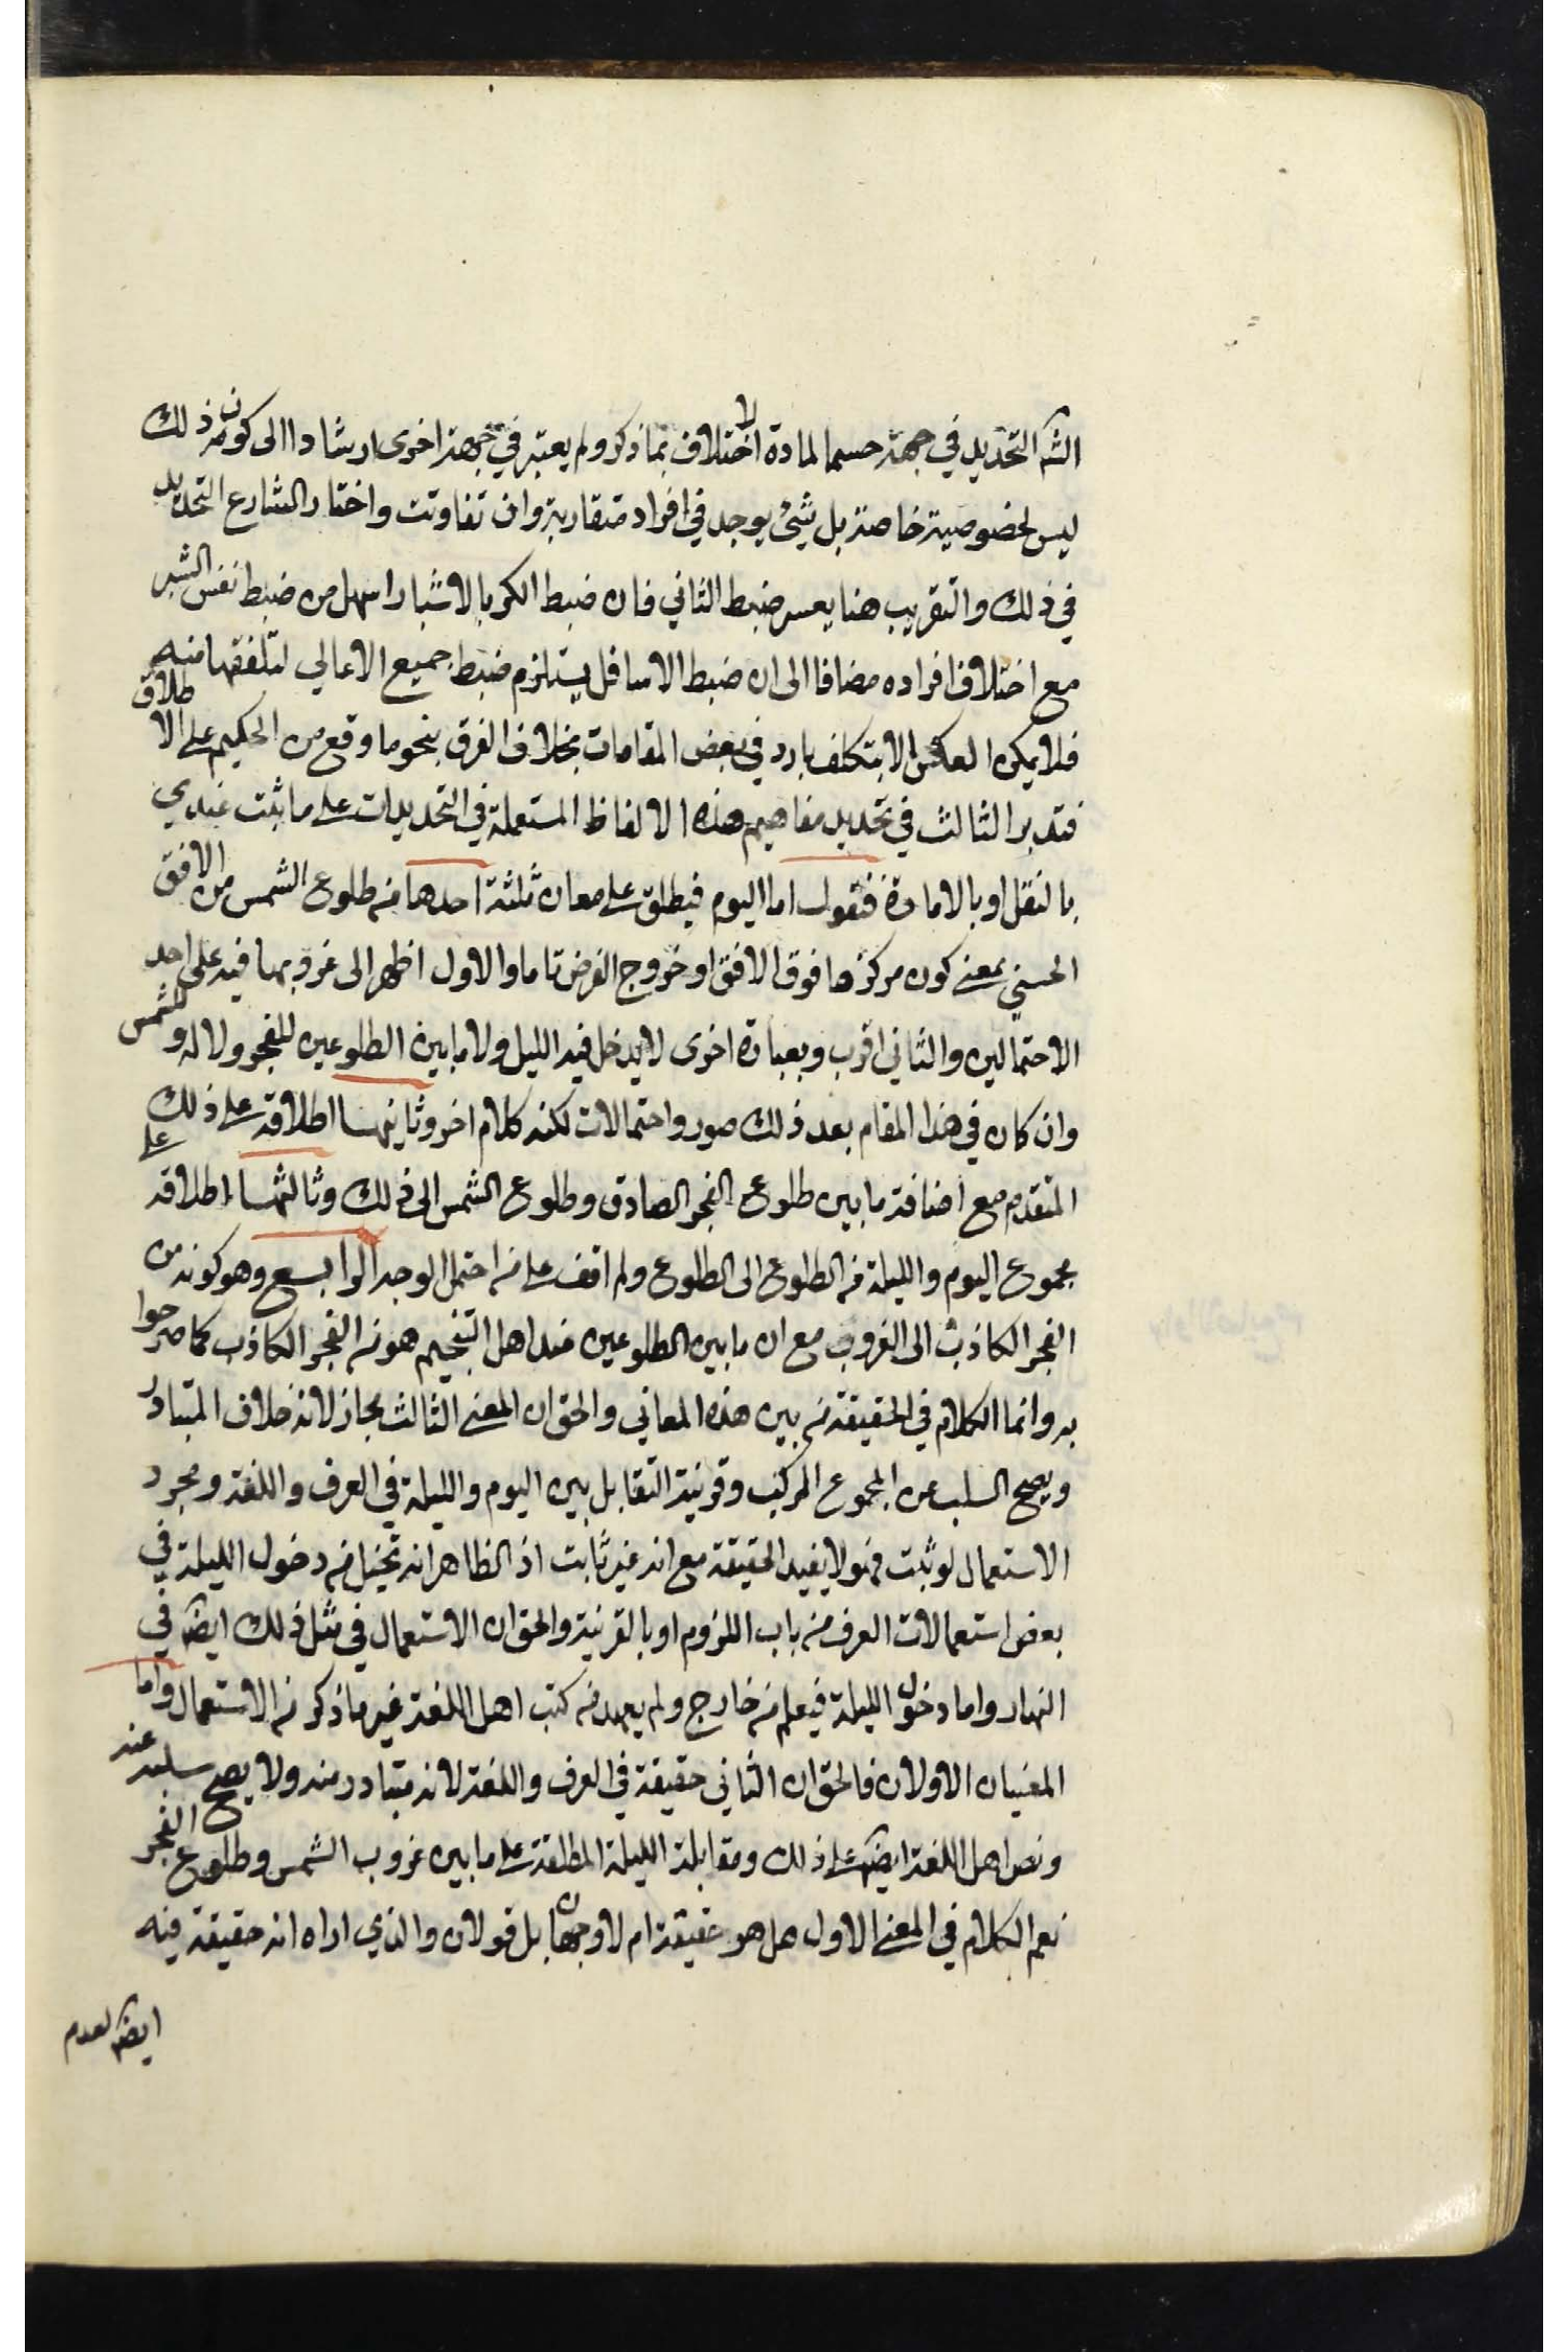 الش التحديد في جهة حسما لمادة الاختلاف بما ذكر ولم يعتبر في جهة اخرى ارشادا الى كون ذلك
ليس لخصوصية خاصة بل شيئ يوجد في افراد متقاربة وان تفاوتت واختار الشارع التحديد
في ذلك والتقريب هنا يعسر ضبط الثاني فان ضبط الكر بالاشبار اسهل من ضبط نفس الشبر
مع اختلاف افراده مضافا الى ان ضبط الاسافل يستلزم ضبط جميع الاعالي لتلفقها منه
فلا يمكن العكس الا بتكلف بارد في بعض المقامات بخلاف الفرق بنحو ما وقع من الحكيم على الاطلاق
فتدبر الثالث في تحديد مفاهيم هذه الالفاظ المستعملة في التحديدات على ما ثبت عندي
بالنقل او بالامارة فنقول اما اليوم فيطلق على معان ثلثة احدها من طلوع الشمس من الافق
الحسي بمعنى كون مركزها فوق الافق او خروج القرص تاما والاول اظهر الى غروبها فيه على احد
الاحتمالين والثاني اقرب وبعبارة اخرى لا يدخل فيه الليل ولا ما بين الطلوعين للفجر ولا له وللشمس
وان كان في هذا المقام بعد ذلك صور واحتمالات لكنه كلام اخر وثانيها اطلاقه على ذلك
المتقدم مع اضافة ما بين طلوع الفجر الصادق وطلوع الشمس الى ذلك وثالثها اطلاقه على
مجموع اليوم والليلة من الطلوع الى الطلوع ولم اقف على من احتمل الوجه الرابع وهو كونه من
الفجر الكاذب الى الغروب مع ان ما بين الطلوعين عند اهل التنجيم هو من الفجر الكاذب كما صرحوا
به وانما الكلام في الحقيقة من بين هذه المعاني والحق ان المعنى الثالث مجاز لانه خلاف المتبادر
ويصح السلب عن المجموع المركب وقرينة التقابل بين اليوم والليلة في العرف واللغة ومجرد
الاستعمال لو ثبت فهو لا يفيد الحقيقة مع انه غير ثابت اذ الظاهر انه تخيل من دخول الليلة في
بعض استعمالات العرف من باب اللزوم او بالقرينة والحق ان الاستعمال في مثل ذلك ايض في
النهار واما دخول الليلة فيعلم من خارج ولم يعهد من كتب اهل اللغة غير ما ذكر من الاستعمال واما
المعنيان الاولان فالحق ان الثاني حقيقة في العرف واللغة لانه متبادر منه ولا يصح سلبه عنه
ونص اهل اللغة ايض على ذلك ومقابلة الليلة المطلقة على ما بين غروب الشمس وطلوع الفجر
نعم الكلام في المعنى الاول هل هو حقيقة ام لا وجهان بل قولان والذي اراه انه حقيقة فيه
ايض لعدم